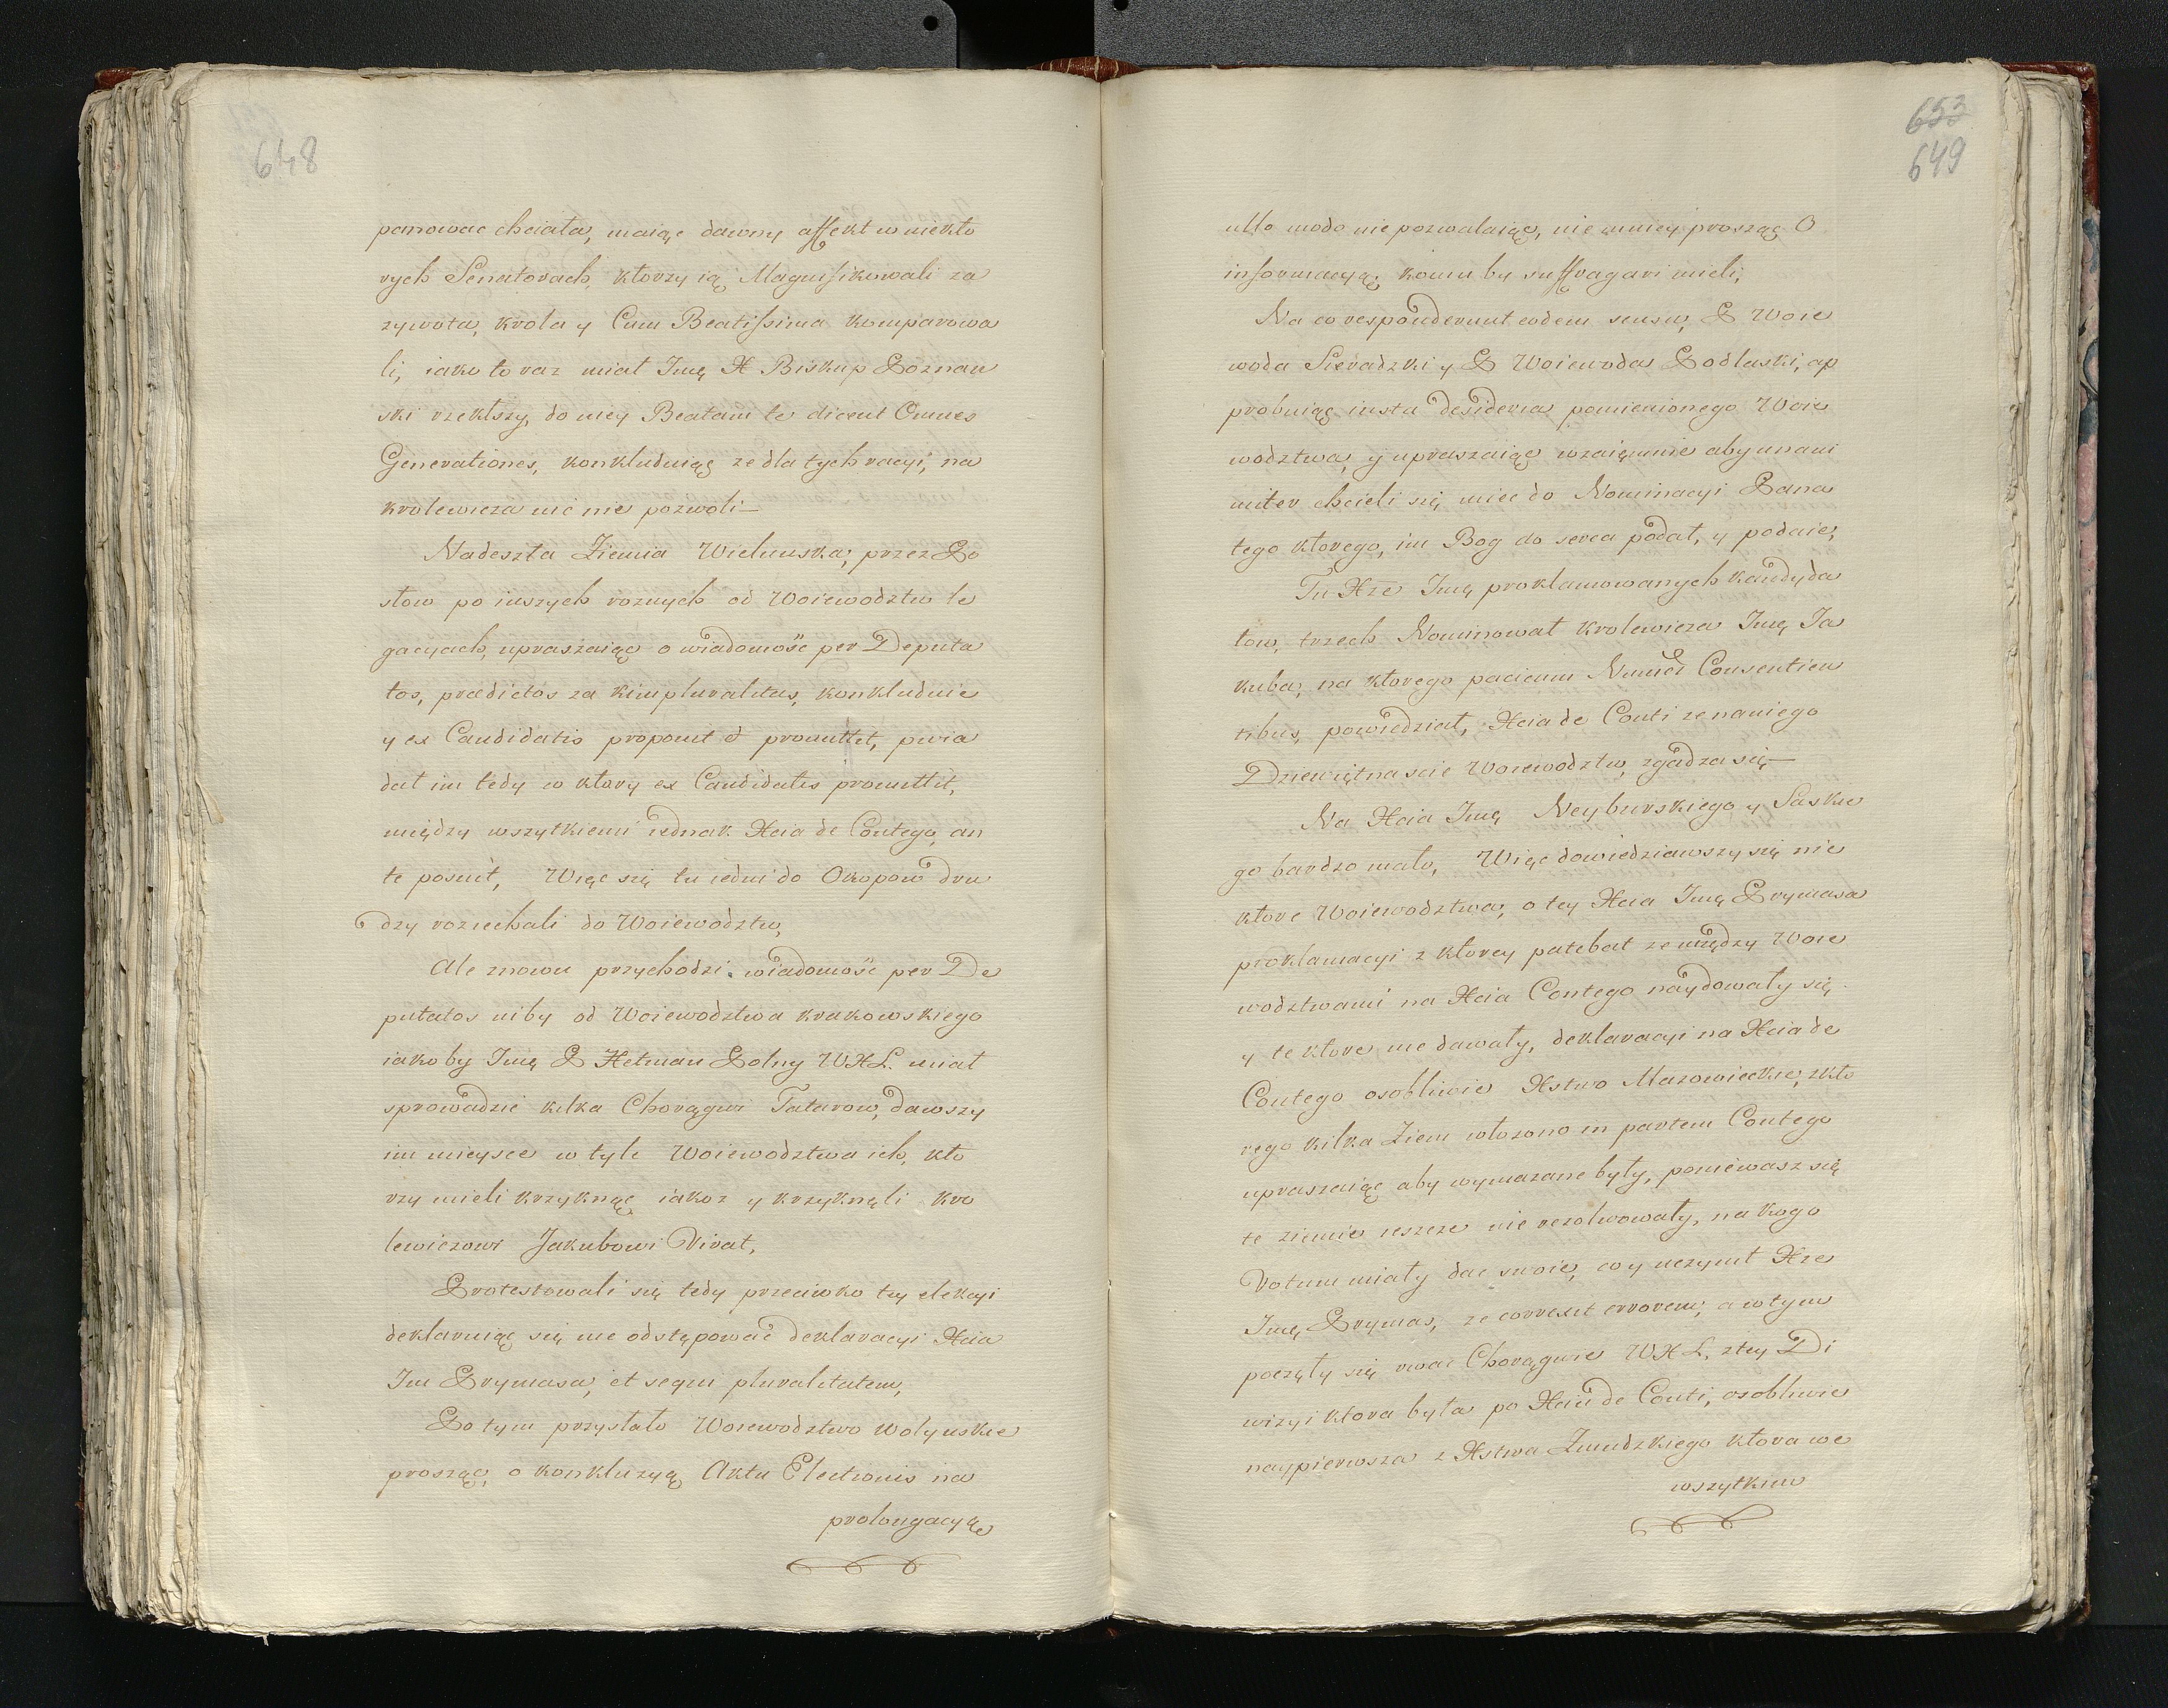 648
panowac chciała, maiąc dawny affekt w niekto
rych Senatorach, ktorzy ią Magnifikowali za
zywota, krola y Cum Beatissima komparowa
li, iako to raz miał Imę X Biskup Poznan
ski rzekłszy, do niey Beatam te dicent Omnes
Generationes, konkluduiąc ze dla tych racyi, na
krolewicza nic nie pozwoli —
Nadeszła Ziemia Wielunska, przez Po
słow po inszych roznych od Woiewodztw le
gacyach, upraszaiąc o wiadomośc per Deputa
tos, prædictos za kim pluralitas, konkluduie
y ex Candidatis proponit et promittet, powia
dał im tedy co ktory ex Candidatis promittit,
między wszytkiemi iednak Xcia de Contego, an
te posuit, Więc się tu iedni do Okopow dru
dzy roziechali do Woiewodztw,
Ale znowu przychodzi wiadomośc per De
putatos niby od Woiewodztwa krakowskiego
iako by Imę P Hetman Polny WXL. miał
sprowadzic kilka Chorągwi Tatarow, dawszy
im mieysce w tyle Woiewodztwa ich, kto
rzy mieli krzyknąc iakoz y krzyknęli kro
lewiczowi Jakubowi Vivat,
Protestowali się tedy przeciwko tey elekcyi
deklaruiąc się nie odstępowac deklaracyi Xcia
Im Prymasa, et sequi pluralitatem,
Po tym przystało Woiewodztwo Wołynskie
prosząc, o konkluzyą Aktu Electionis na
prolongacyą
653
649
ullo modo nie pozwalaiąc, nie mniey prosząc O
informacyą, komu by suffragari mieli,
Na co responderunt eodem sensu, P Woie
woda Sieradzki y P Woiewoda Podlaski, ap
probuiąc iusta desideria pomienionego Woie
wodztwa, y upraszaiąc wzaięmnie aby unani
miter chcieli się miec do Nominacyi Pana
tego ktorego, im Bog do serca podał, y podaie,
Tu Xze Imę proklamowanych kandyda
tow, trzech Nominował krolewicza Imę Ja
kuba, na ktorego paciorum Numer Consentien
tibus, powiedział, Xcia de Conti ze na niego
Dziewiętnascie Woiewodztw, zgadza się —
Na Xcia Imę Neyburskiego y Saskie
go bardzo mało, Więc dowiedziawszy się nie
ktore Woiewodztwa, o tey Xcia Imę Prymasa
proklamacyi z ktorey patebat ze między Woie
wodztwami na Xcia Contego naydowały się
y te ktore nie dawały, deklaracyi na Xcia de
Contego osobliwie Xstwo Mazowieckie, z kto
rego kilka Ziem włozono in partem Contego
upraszaiąc aby wymazane były, poniewasz się
te ziemie ieszcze nie rezolwowały, na kogo
Votum miały dac swoie, co y uczynił Xze
Imę Prymas, ze correxit errorem, a w tym
poczęły się rwac Chorągwie WXL, z tey Di
wizyi ktora była po Xciu de Conti, osobliwie
naypierwsza z Xstwa Zmudzkiego ktora we
wszytkim